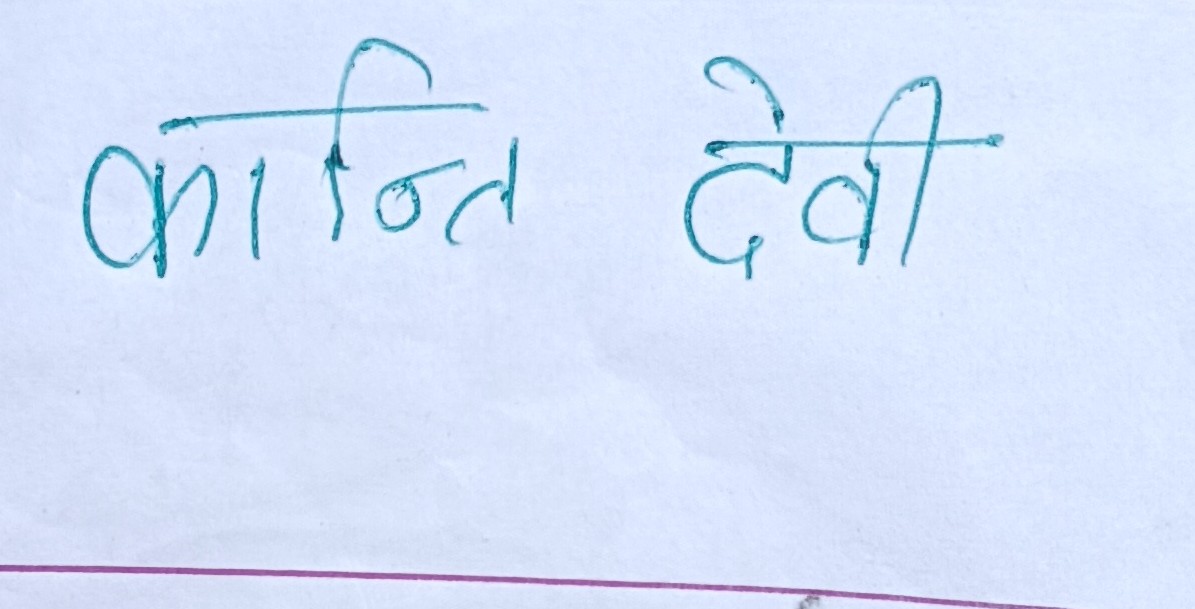 कान्ति देवी